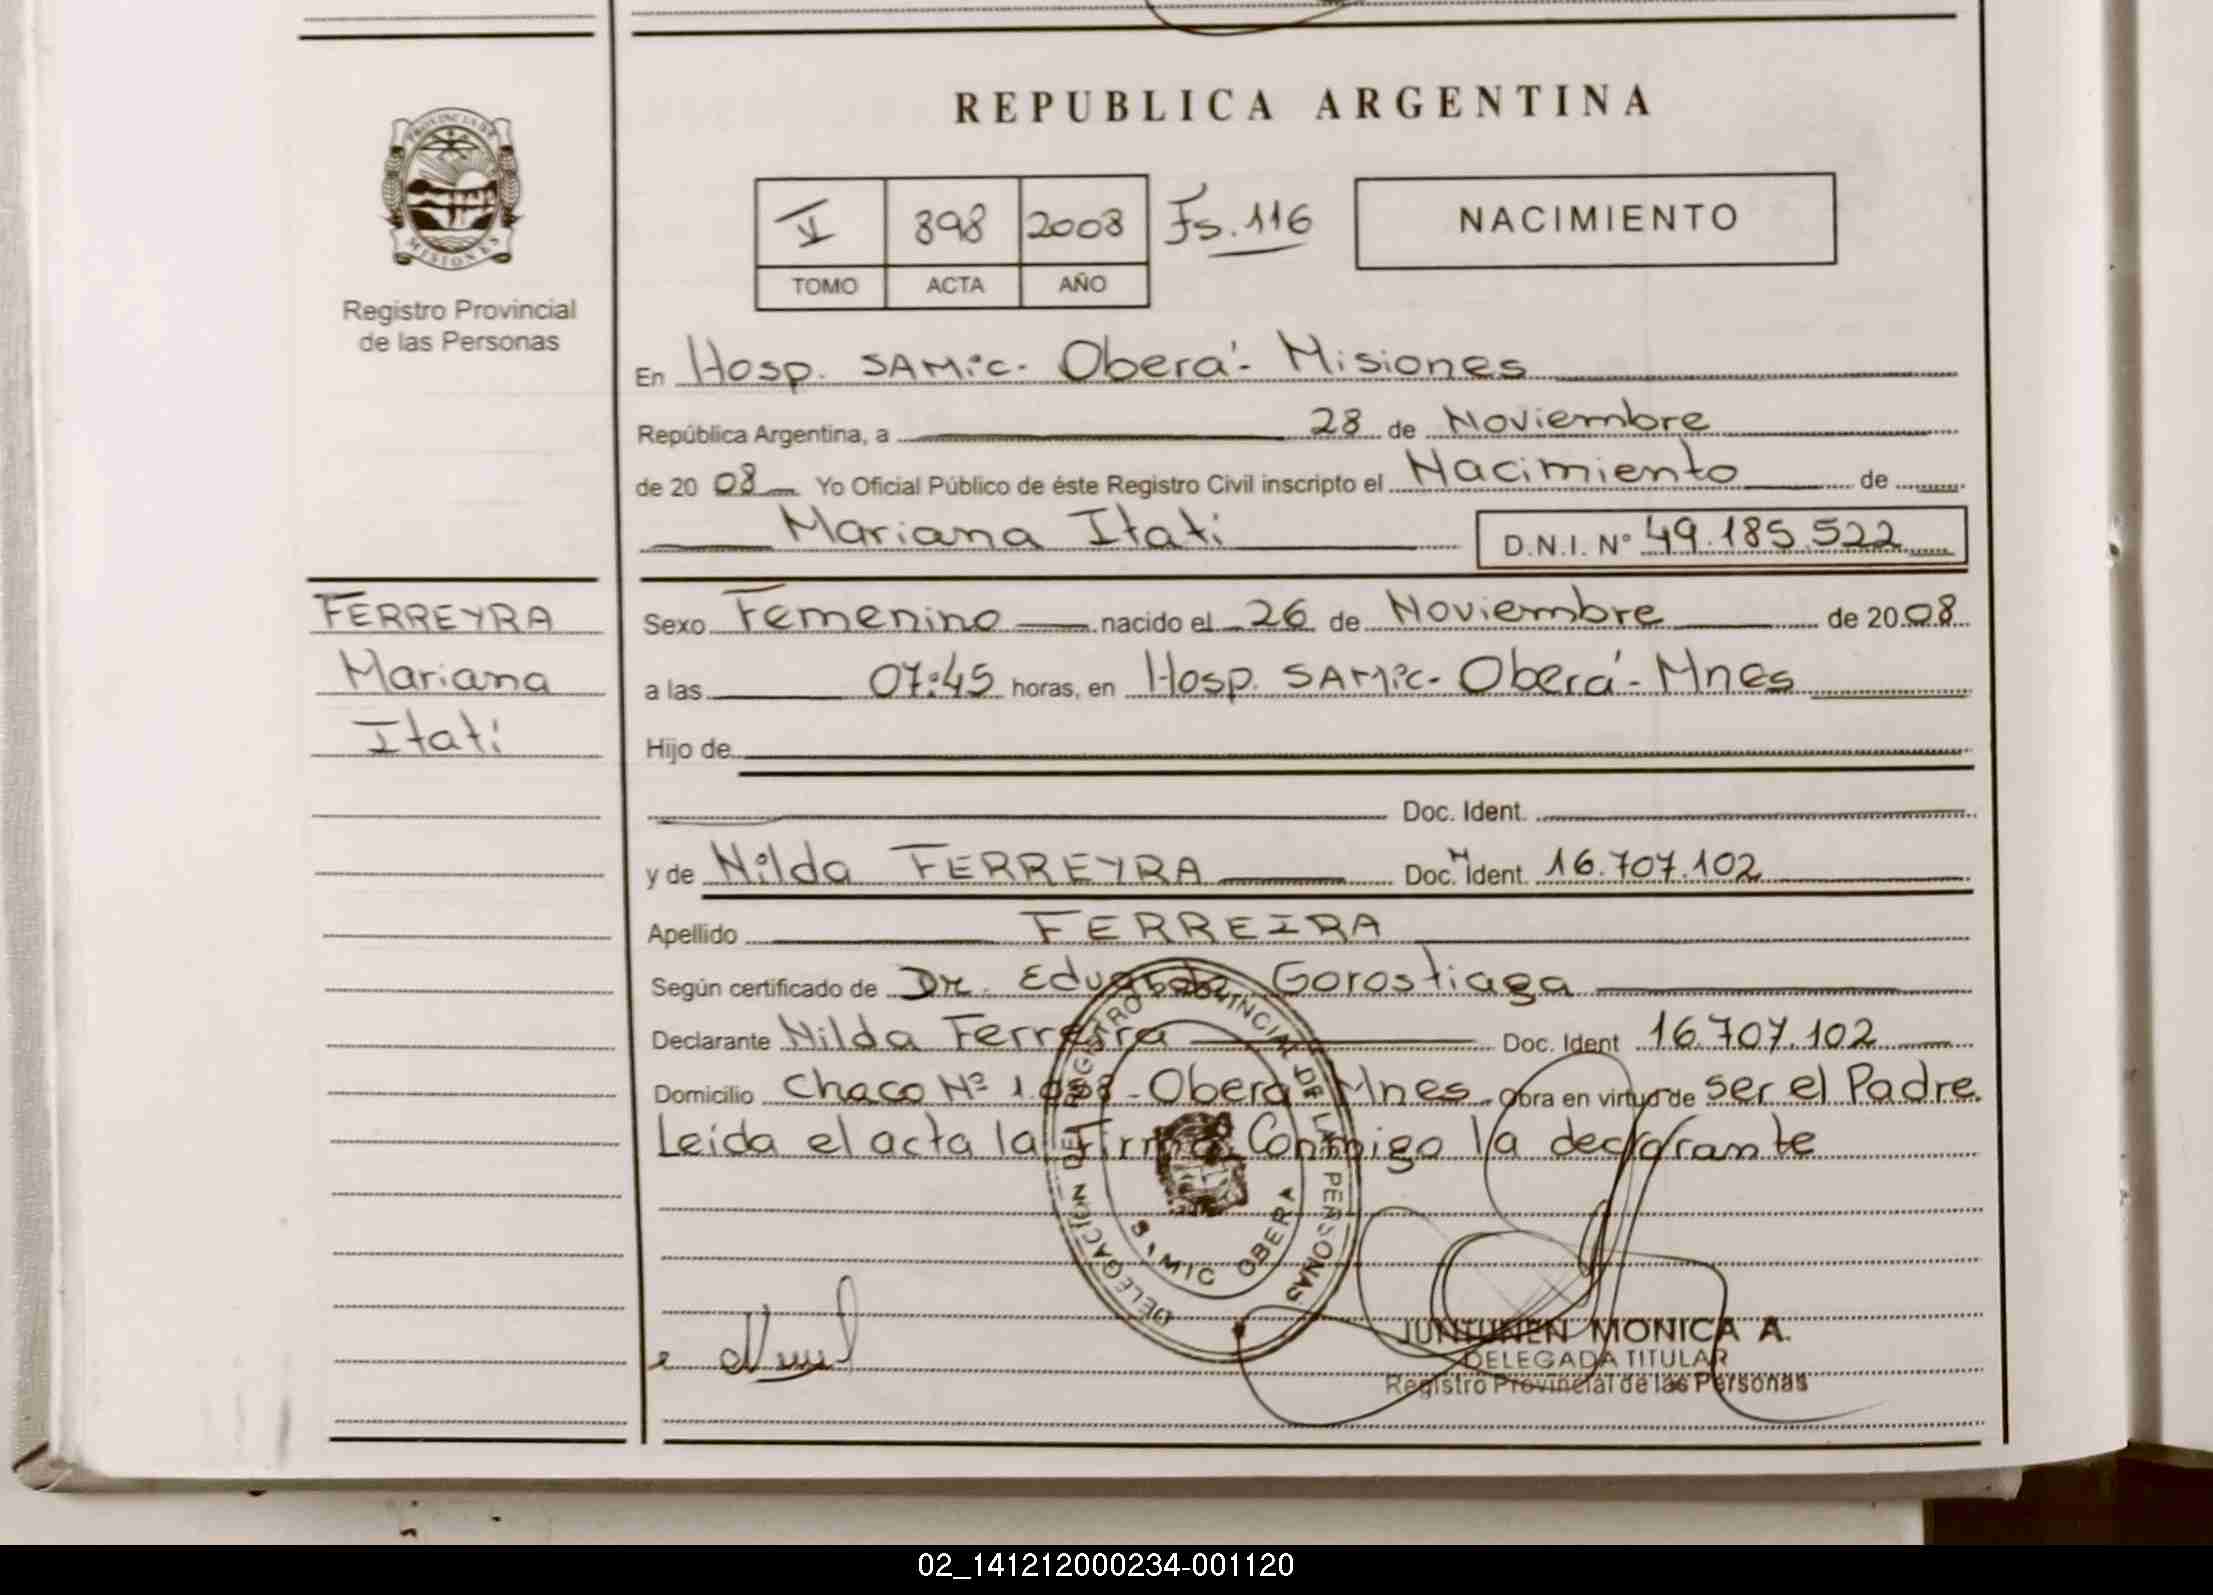 REPUBLICA ARGENTINA
PROVINCIA DE
MISIONES
Registro Provincial
de las Personas
V 898 2008 Fs. 116
TOMO ACTA AÑO
NACIMIENTO
En Hosp. SAMiC - Oberá - Misiones
República Argentina, a 28 de Noviembre
de 20 08 Yo Oficial Público de éste Registro Civil inscripto el Nacimiento de
Mariana Itatí D.N.I. Nº 49.185.522
FERREYRA
Mariana
Itatí
Sexo Femenino nacido el 26 de Noviembre de 20 08
a las 07:45 horas, en Hosp. SAMiC - Oberá - Mnes
Hijo de
Doc. Ident.
y de Nilda FERREYRA Doc. Ident. M 16.707.102
Apellido FERREIRA
Según certificado de Dr. Eduardo Gorostiaga
Declarante Nilda Ferreira Doc. Ident 16.707.102
Domicilio Chaco Nº - Oberá Mnes. Obra en virtud de ser el Padre.
Leída el acta la Firma Conmigo la declarante
DELEGACION DEL REGISTRO PROVINCIAL DE LAS PERSONAS
OBERA
JUNTUNEN MONICA A.
DELEGADA TITULAR
Registro Provincial de las Personas
02_141212000234-001120